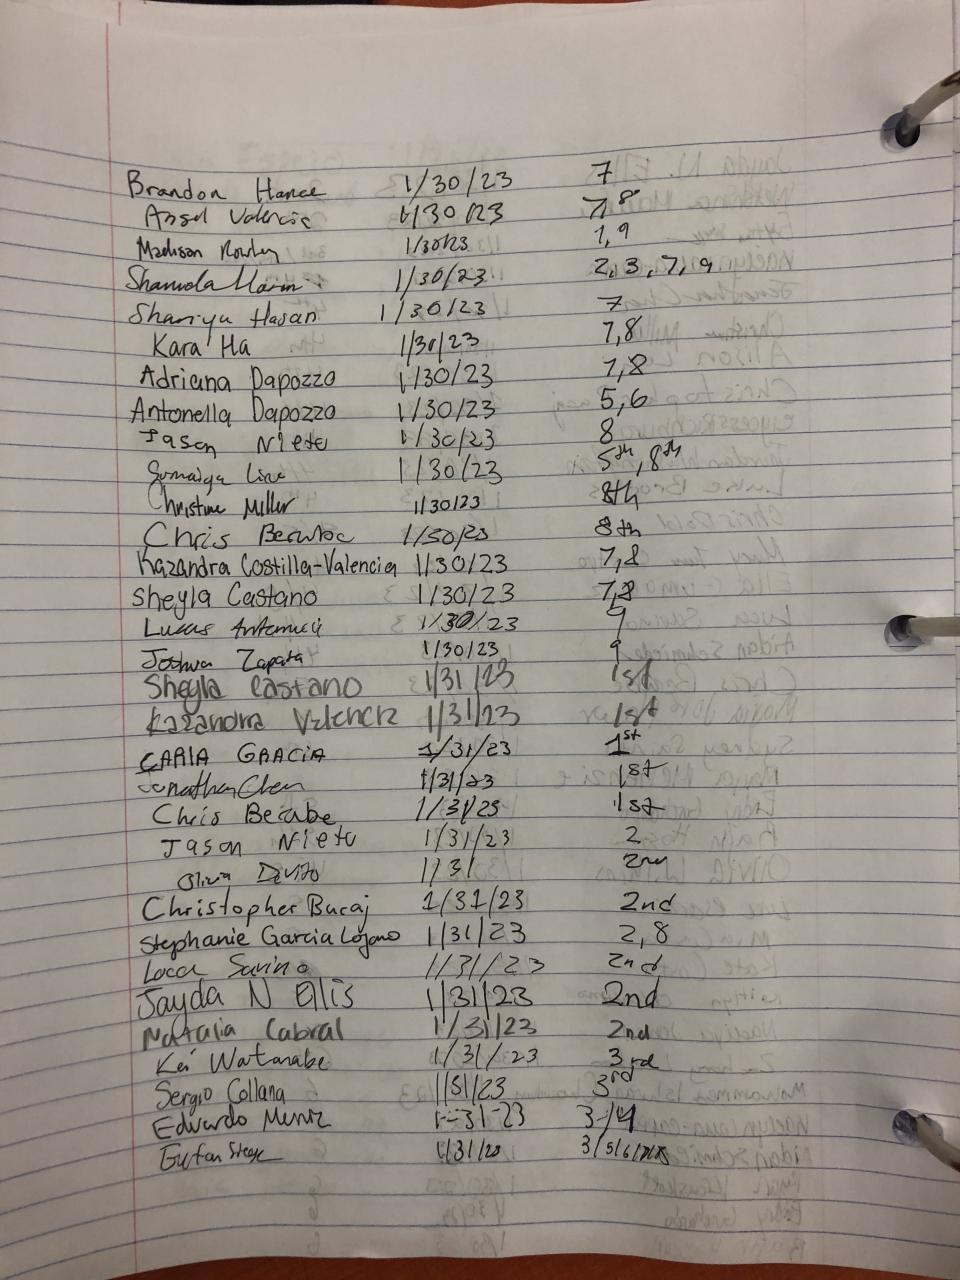 Brandon Hance 1/30/23 7
Angel Valencia 1/30/23 7,8
Madison Rowley 1/30/23 1,9
1/30/23 2,3,7,9
Shariyu Hasan 1/30/23 7
Kara Ha 1/30/23 7,8
Adriana Dapozzo 1/30/23 7,8
Antonella Dapozzo 1/30/23 5,6
Jason Nieto 1/30/23 8
Sumaiya 1/30/23 5th, 8th
Christine Miller 1/30/23 8th
Chris Berabe 1/30/23 8th
Kazandra Costilla-Valencia 1/30/23 7,8
Sheyla Castano 1/30/23 7,8
Lucas Antonucci 1/30/23 9
Joshua Zapata 1/30/23 9
Sheyla Castano 1/31/23 1st
Kazandra Valencia 1/31/23 1st
CARLA GRACIA 1/31/23 1st
Jonathan Chen 1/31/23 1st
Chris Berabe 1/31/23 1st
Jason Nieto 1/31/23 2
Olivia Devito 1/31 2nd
Christopher Bucaj 1/31/23 2nd
Stephanie Garcia Lozano 1/31/23 2,8
Luca Savino 1/31/23 2nd
Jayda N Ellis 1/31/23 2nd
Natalia Cabral 1/31/23 2nd
Kei Watanabe 1/31/23 3rd
Sergio Collana 1/31/23 3rd
Edvardo Muniz 1-31-23 3/4
1/31/23 3/5/6/7/8